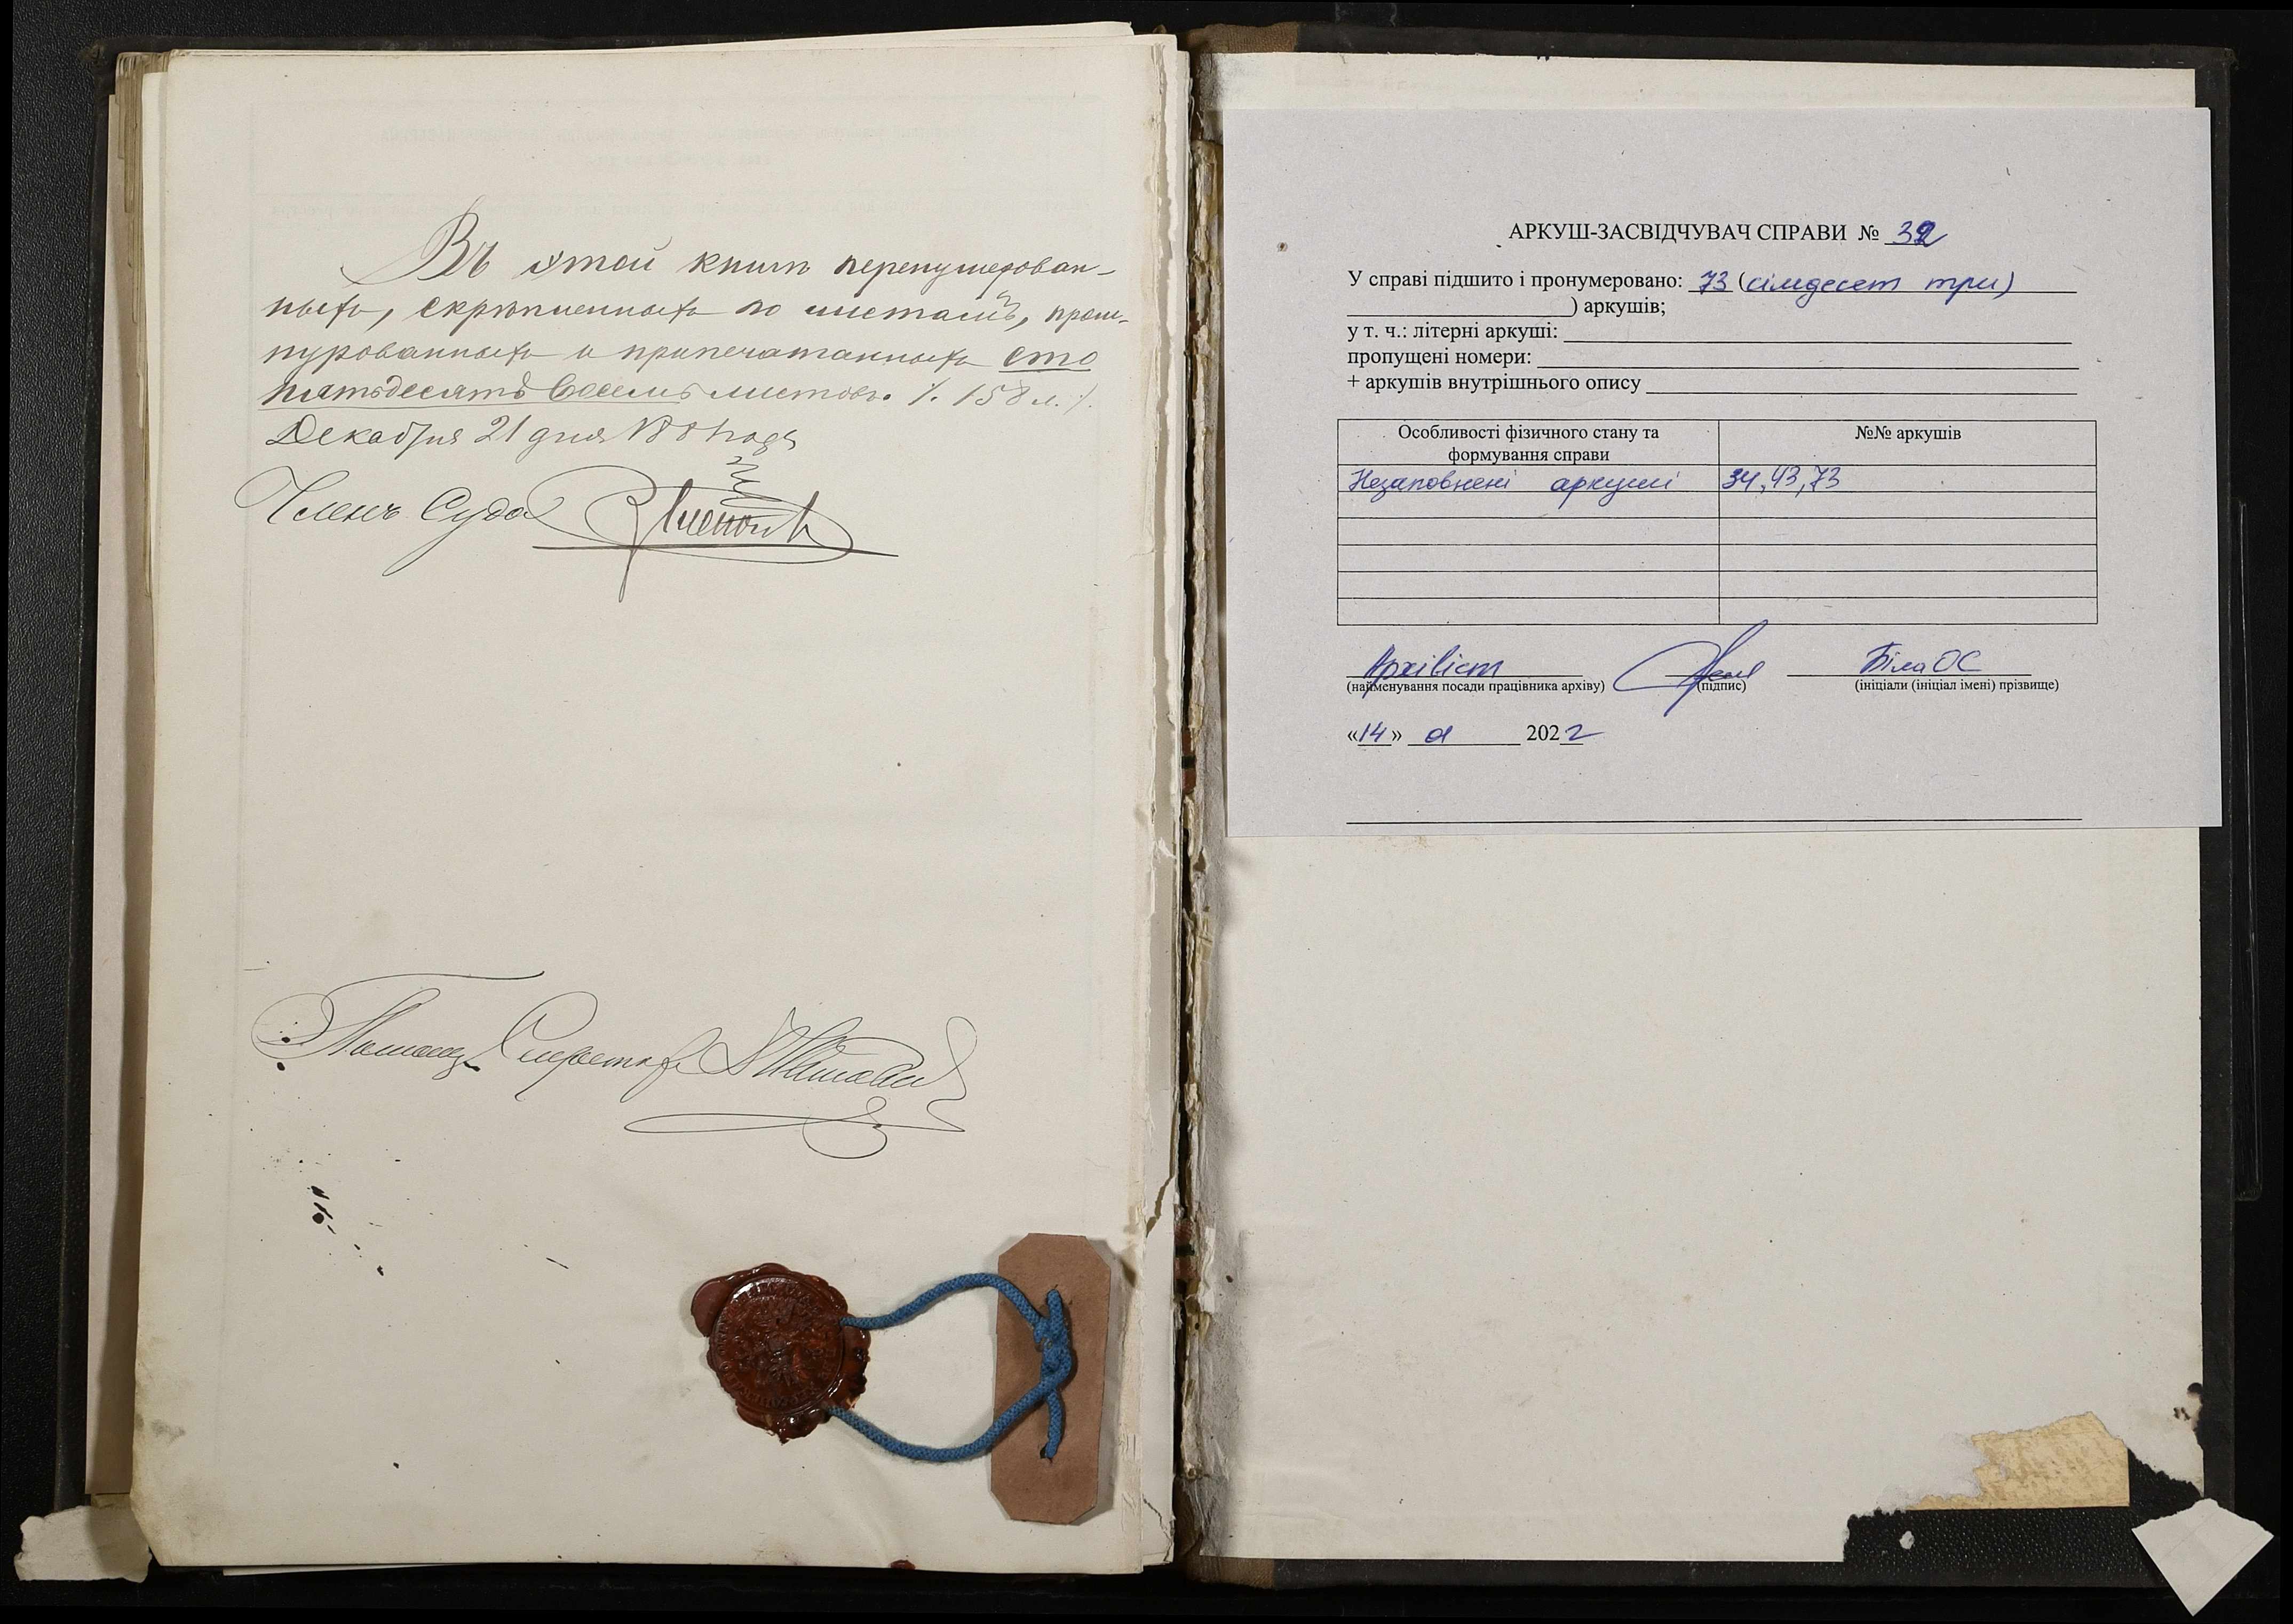 Въ этой книгѣ перенумерован-
ныхъ, скрѣпленныхъ по листамъ, прош-
нурованныхъ и припечатанныхъ сто
пятьдесятъ восемь листовъ. ٪. 158 л. ٪.
Декабря 21 дня года
Членъ Суда
Помощ. Секретаря
АРКУШ-ЗАСВІДЧУВАЧ СПРАВИ № 32
У справі підшито і пронумеровано: 73 (сімдесят три)
) аркушів;
у т. ч.: літерні аркуші:
пропущені номери:
+ аркушів внутрішнього опису
Особливості фізичного стану та
формування справи
№№ аркушів
Незаповнені аркуші 34, 43, 73
Архівіст Біла ОС
(найменування посади працівника архіву) (підпис) (ініціали (ініціал імені) прізвище)
«14» 01 2022